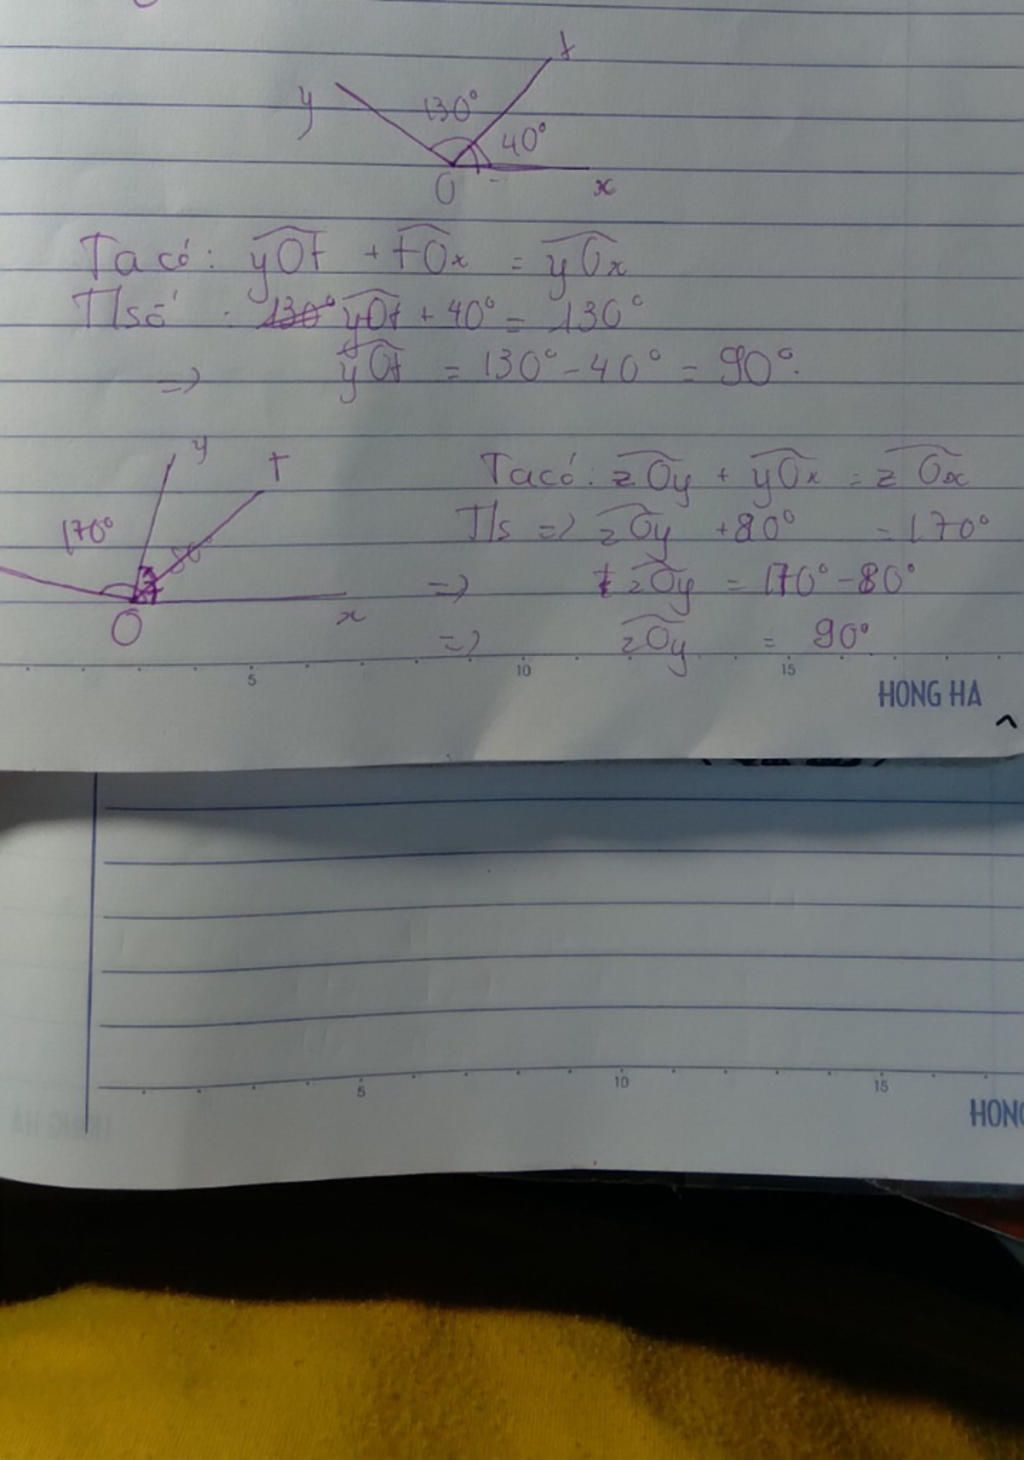 t
y
130°
40°
O
x
Ta có: yOt + tOx = yOx
T/số: 130° yOt + 40° = 130°
=> yOt = 130° - 40° = 90°.
y
t
170°
O
x
Ta có: zOy + yOx = zOx
T/s => zOy + 80° = 170°
=> zOy = 170° - 80°
=> zOy = 90°
5 10 15
HONG HA
5 10 15
HONG